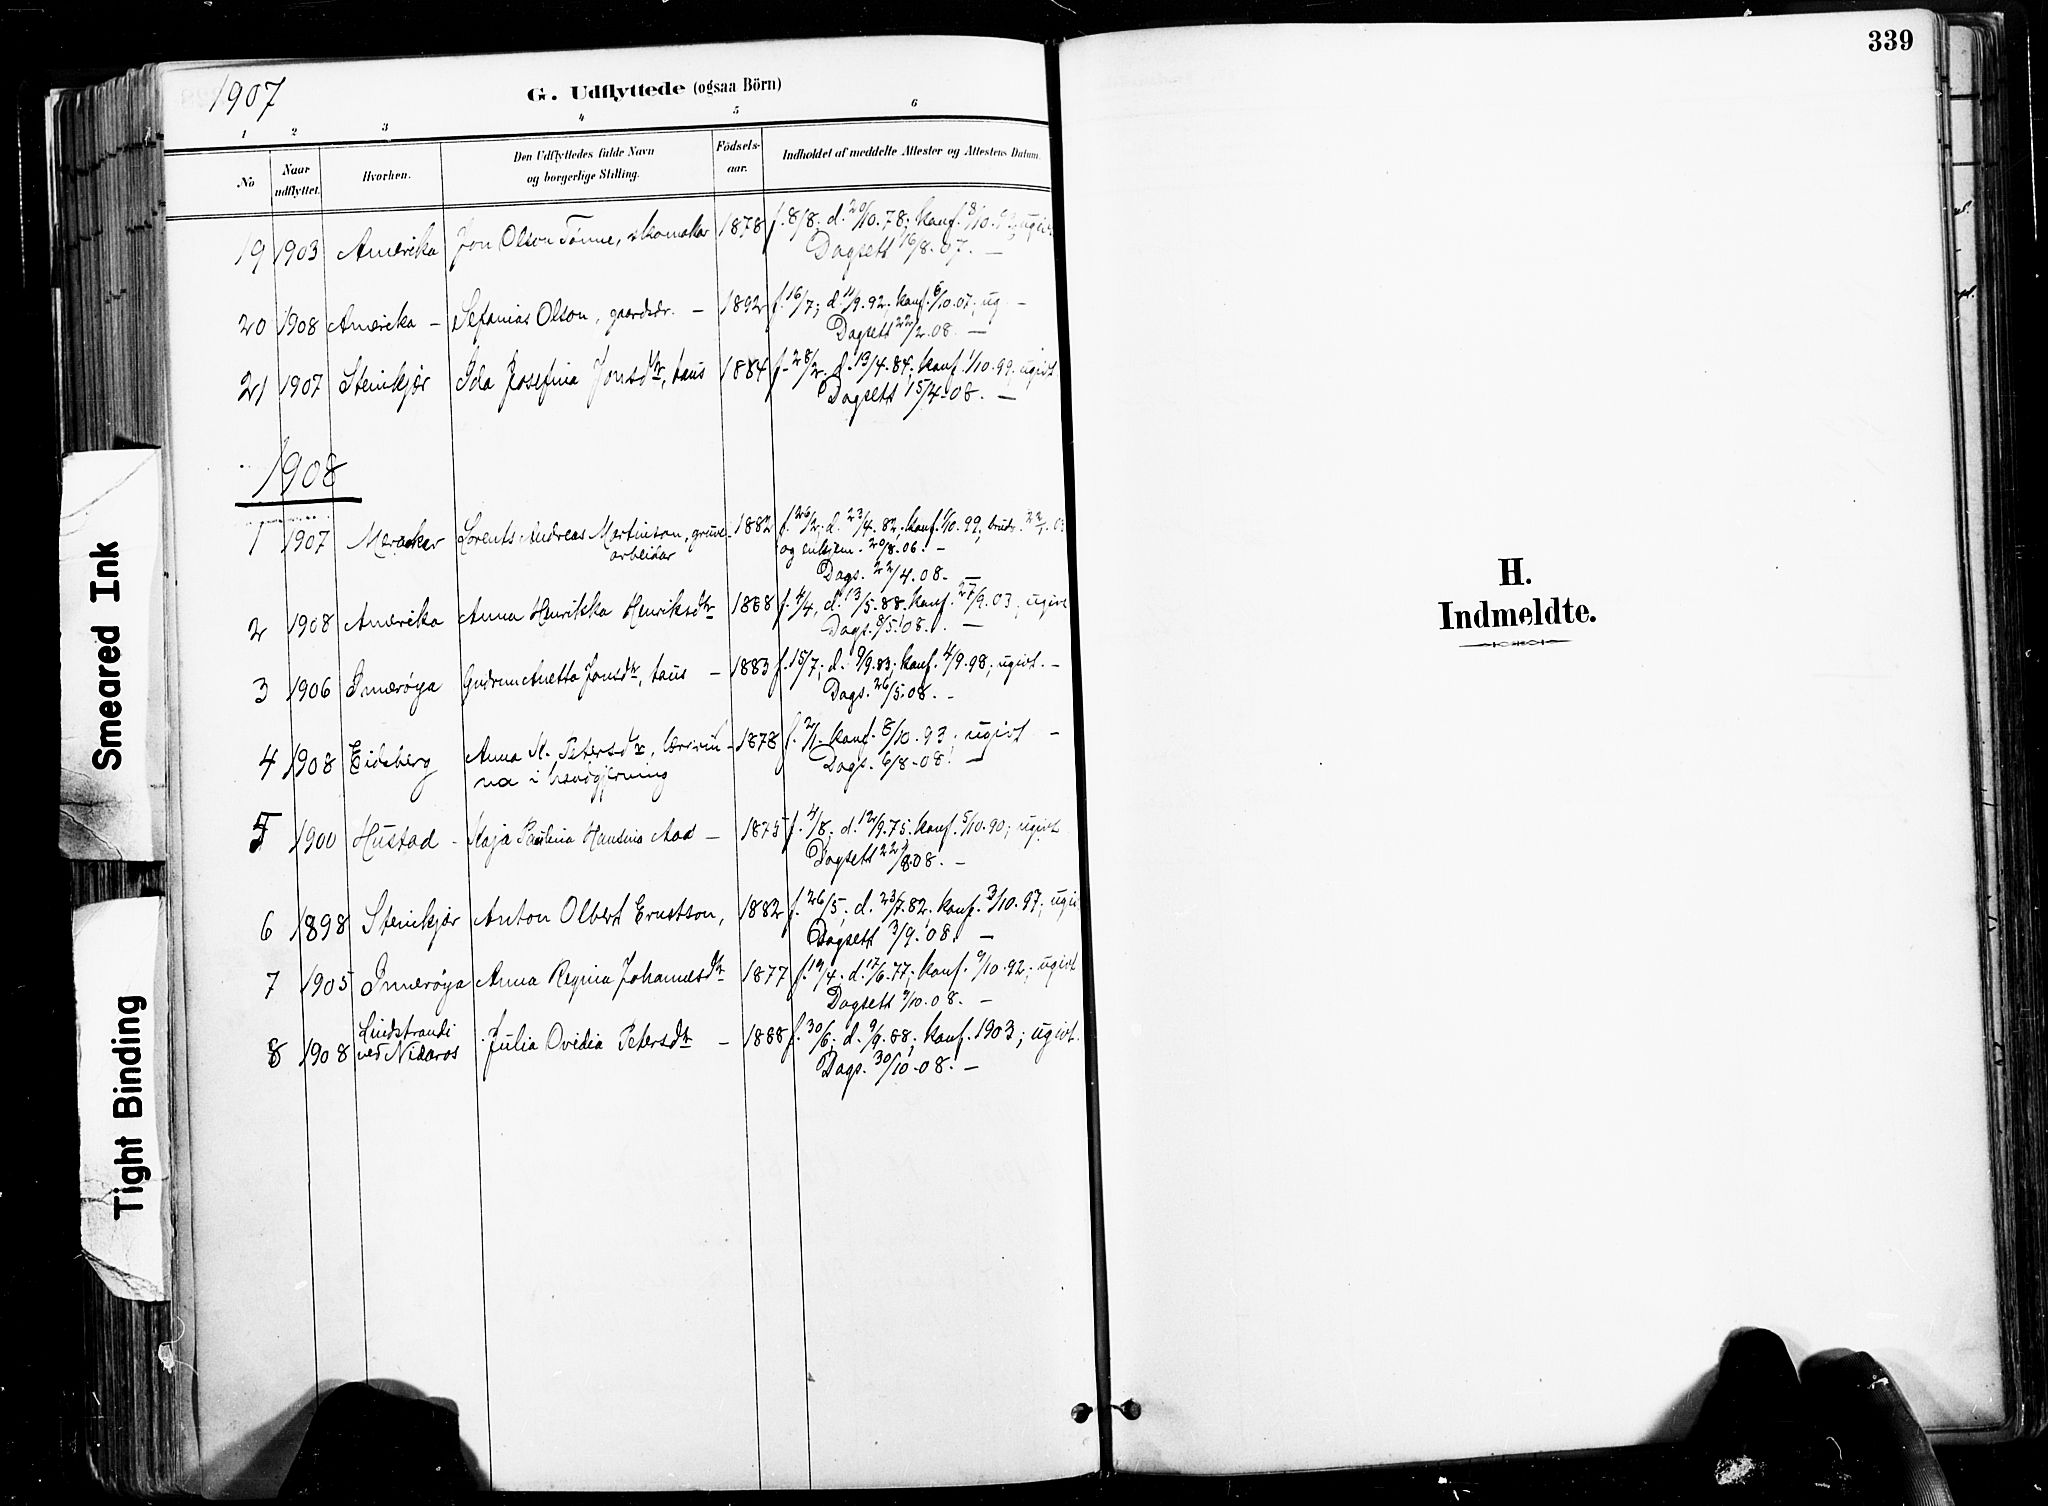 339
1907
G. Udflyttede (ogsaa Börn)
1 2 3 4 5 6
No
Naar udflyttet.
Hvorhen.
Den Udflyttedes fulde Navn
og borgerlige Stilling.
Födsels-
aar.
Indholdet af meddelte Attester og Attestens Datum.
19 1903 Amerika Jon Olson Tønne, skomakar 1878 f. 8/8; d. 20/10. 78; konf. 8/10.
Dagsett 16/8. 07. —
20 1908 Amerika — Sefanias Olson, gaardsdr. — 1892 f. 16/7; d. 11/9. 92; konf. 6/10. 07; ug. —
Dagsett 22/2. 08. —
21 1907 Steinkjær Ida Josefina Jonsdtr, taus 1884 f. 28/2. d. 13/4. 84; konf. 1/10. 99; ugivt
Dagsett 15/4. 08. —
1908
1 1907 Meraker Lorents Andreas Martinson, gruve- 1882 f. 26/2; d. 23/4. 82; konf. 1/10. 99; brudv. 22/1. 03
arbeidar og enkjem. 20/8. 06. —
Dags. 22/4. 08. —
2 1908 Amerika Anna Henrikka Henriksdtr 1888 f. 4/4, d. 13/5. 88. konf. 27/9. 03; ugivt
Dags. 8/5. 08. —
3 1906 Inderøya Gudrun Anetta Jonsdtr, taus — 1883 f. 15/7; d. 9/9. 83; konf. 4/9. 98; ugivt. —
Dags. 26/5. 08. —
4 1908 Eidsberg Anna M. Petersdtr, lærerin- 1878 f. 2/1. konf. 8/10. 93; ugivt —
na i handgjerning Dags. 6/8. 08. —
5 1900 Hustad — Kaja Paulina Hansina Aas — 1875 f. 4/8; d. 12/9. 75. konf. 5/10. 90; ugivt
Dagsett 22/8. 08. —
6 1898 Steinkjær Anton Olbert Ernstson, 1882 f. 26/5; d. 23/7. 82; konf. 3/10. 97; ugiv
Dagsett 3/9. 08. —
7 1905 Inderøya Anna Regina Johannesdtr 1877 f. 19/4. d. 17/6. 77; konf. 9/10. 92; ugivt
Dagsett 9/10. 08. —
8 1908 Lindstrandi
ved Nidaros Julia Ovidia Petersdtr — 1888 f. 30/6; d. 9/9. 88; konf. 1903; ugivt.
Dags. 30/10. 08. —
Smeared Ink
Tight Binding
H.
Indmeldte.